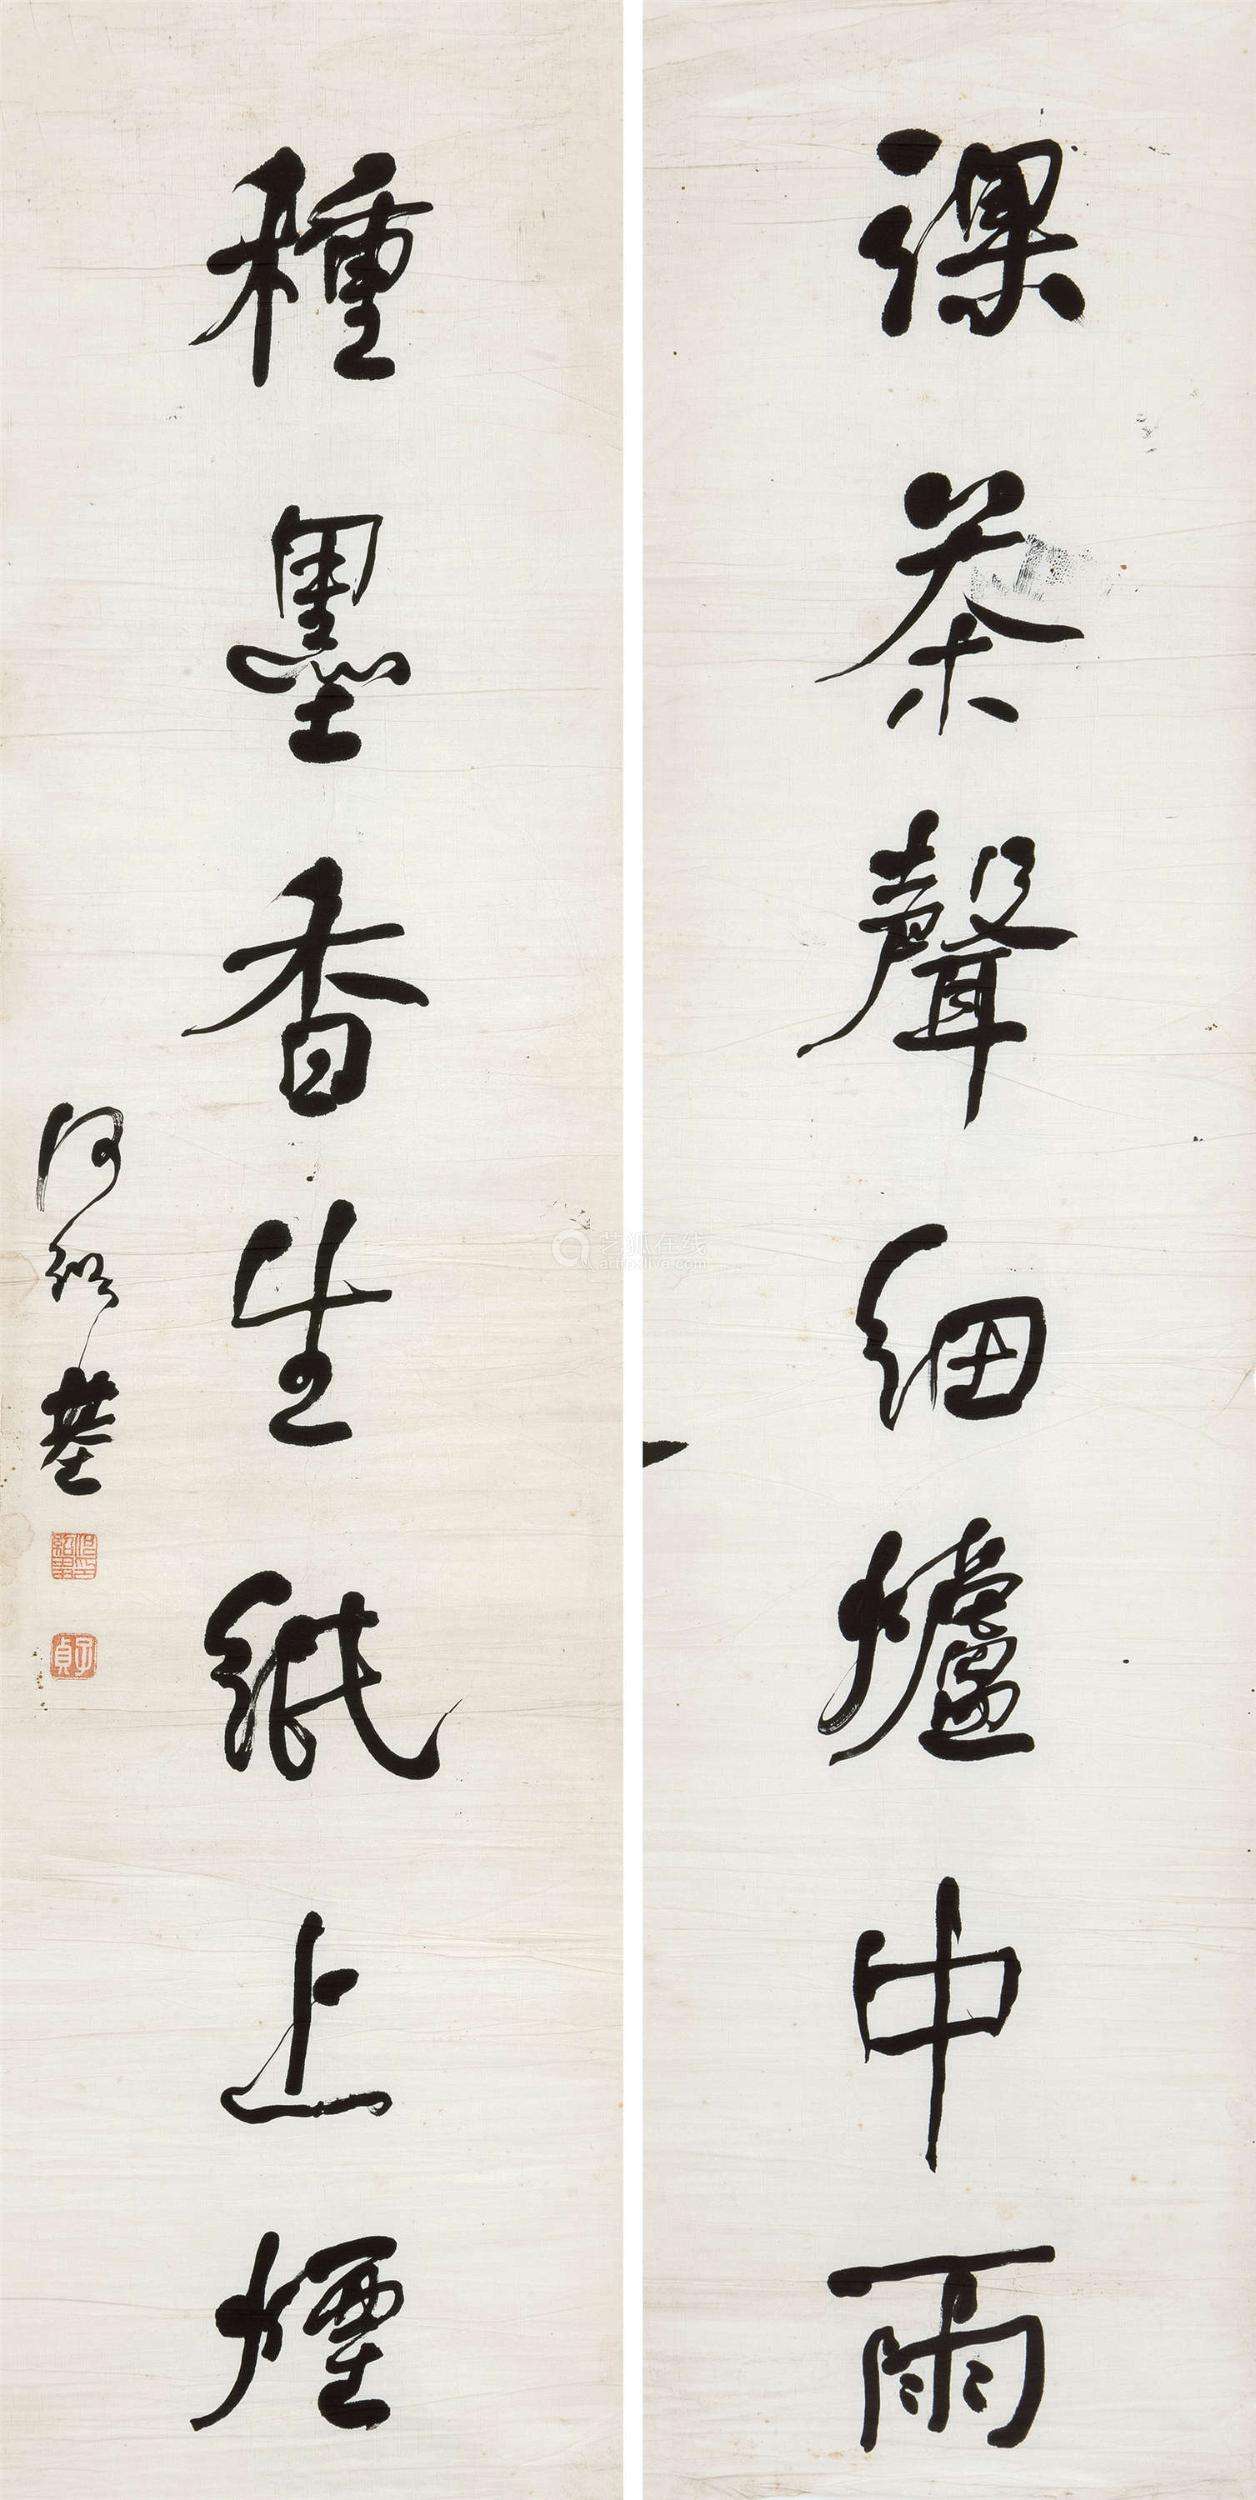 課茶聲細爐中雨
種墨香生紙上煙
何紹基
子貞
艺狐在线
artfoxlive.com